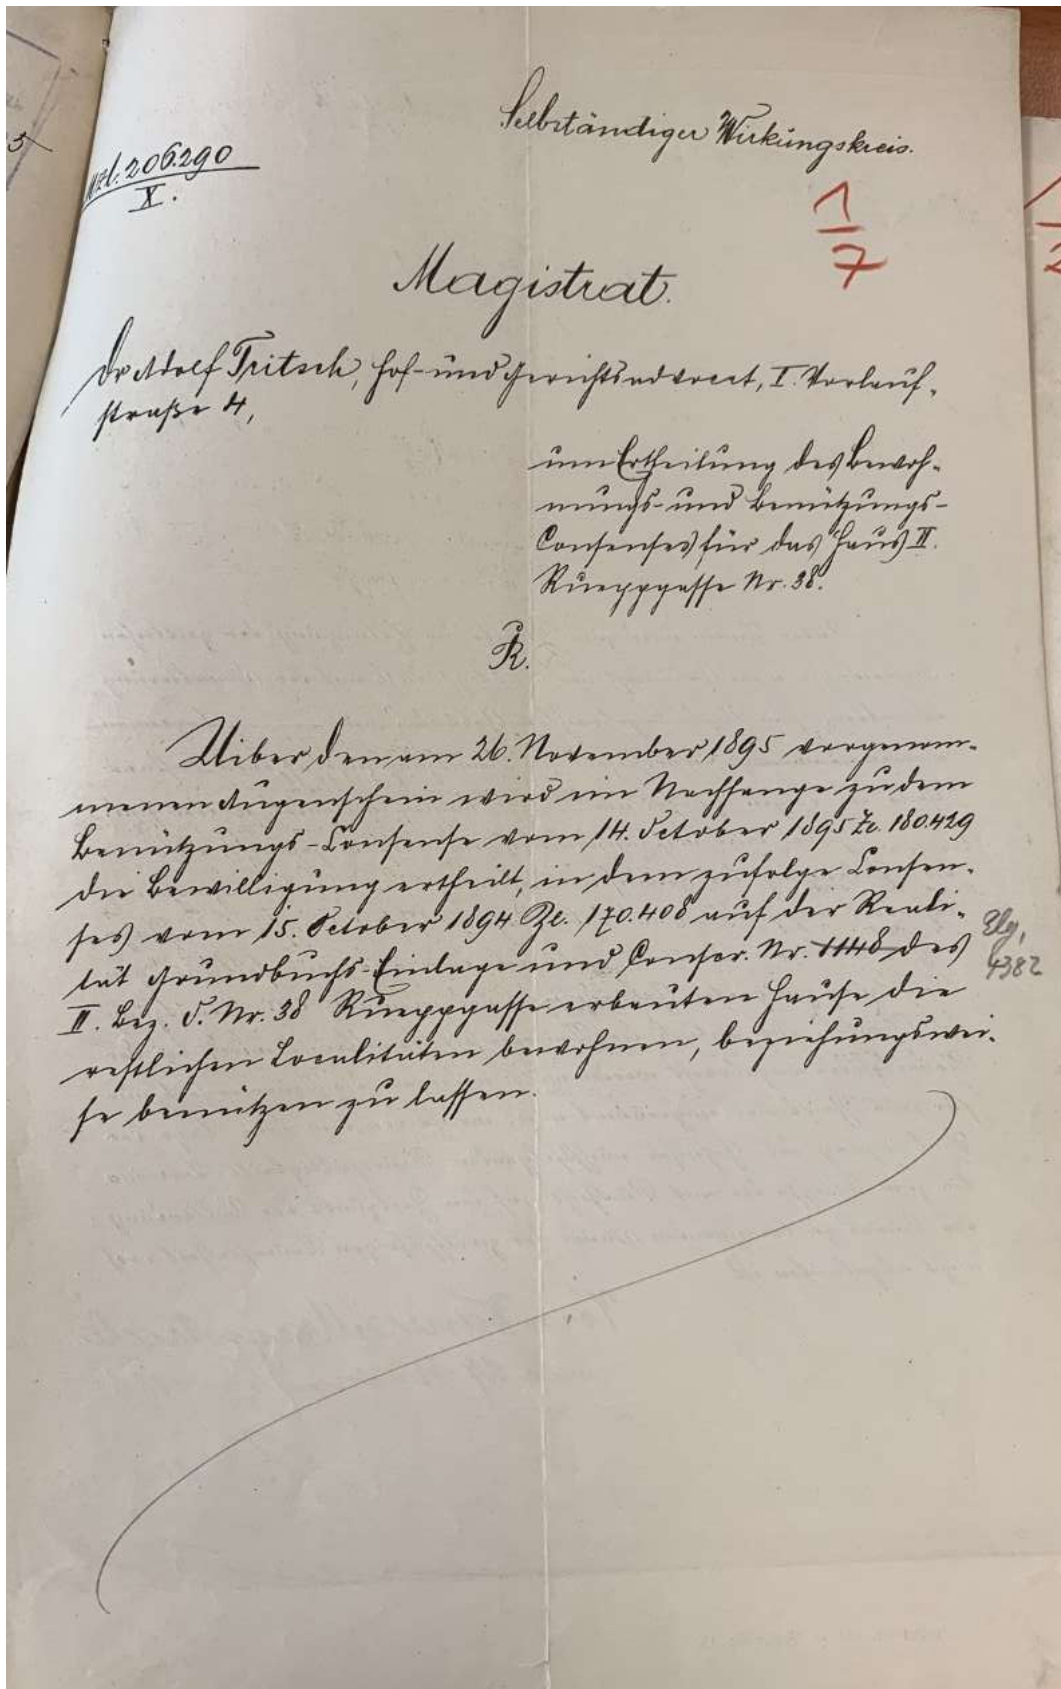 Selbständiger Wirkungskreis.
Mzl. 206.290
X.
1
7
Magistrat.
Dr Adolf Tritsch, Hof- und Gerichtsadvocat, I. Vorlauf-
straße 4,
um Ertheilung des Bewoh-
nungs- und Benützungs-
Consenses für das Haus II.
Rueppgasse Nr. 38.
R.
Uiber den am 26. November 1895 vorgenom-
menen Augenschein wird im Nachhange zu dem
Benützungs-Consense vom 14. October 1895 Zl. 180.429
die Bewilligung ertheilt, in dem zufolge Consen-
ses vom 15. October 1894 Zl. 170.408 auf der Reali-
tät Grundbuchs-Einlage und Conscr. Nr. 1148 des
Elg. 4382
II. Bez. O. Nr. 38 Rueppgasse erbauten Hause die
restlichen Localitäten bewohnen, beziehungswei-
se benützen zu lassen.